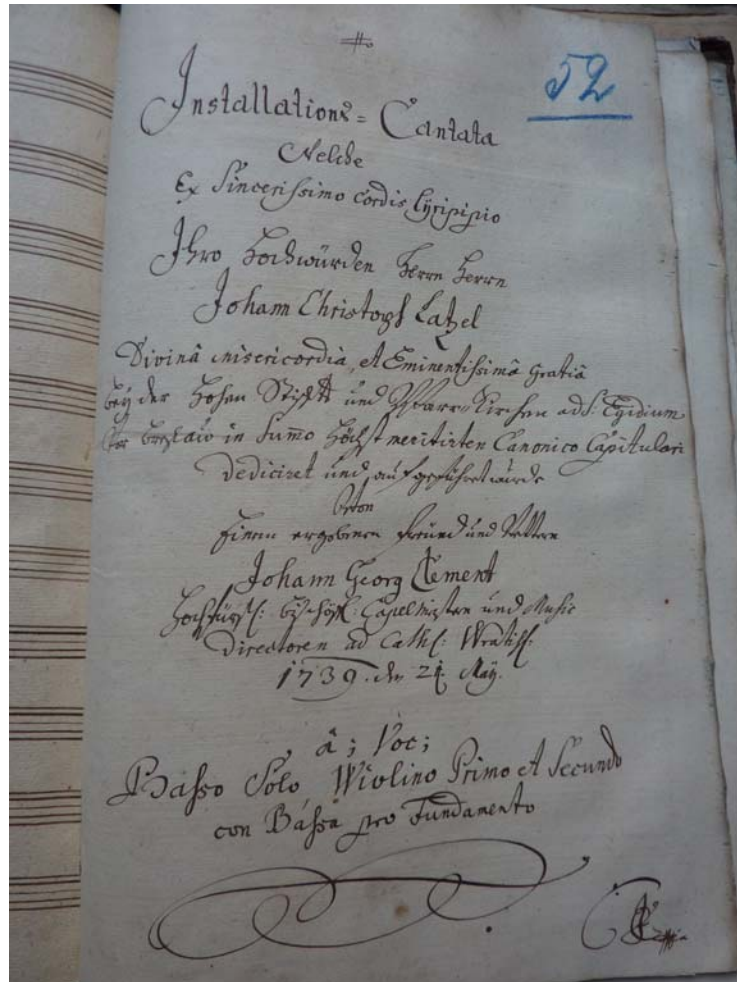 52
Installations=Cantata
Welche
Ex Sincerissimo Cordis Lyripipio
Ihro Hochwürden Herrn Herrn
Johann Christoph Latzel
Divinâ Misericordia, et Eminentissimâ Gratiâ
bey der Hohen Stiffts und Pfarr-Kirchen ad S: Egidium
in Summo Höchst meritirten Canonico Capitulari
dediciret und aufgeführet wurde
von
Einem ergebenen Freünd und Vettern
Johann Georg Clement
Hochfürstl: Bischöfl: Capelmeistern und Music
Directoren ad Cath: Wratisl:
1739. den 24 May.
â; Voc;
Basso Solo Wiolino Primo et Secundo
con Bassa pro Fundamento